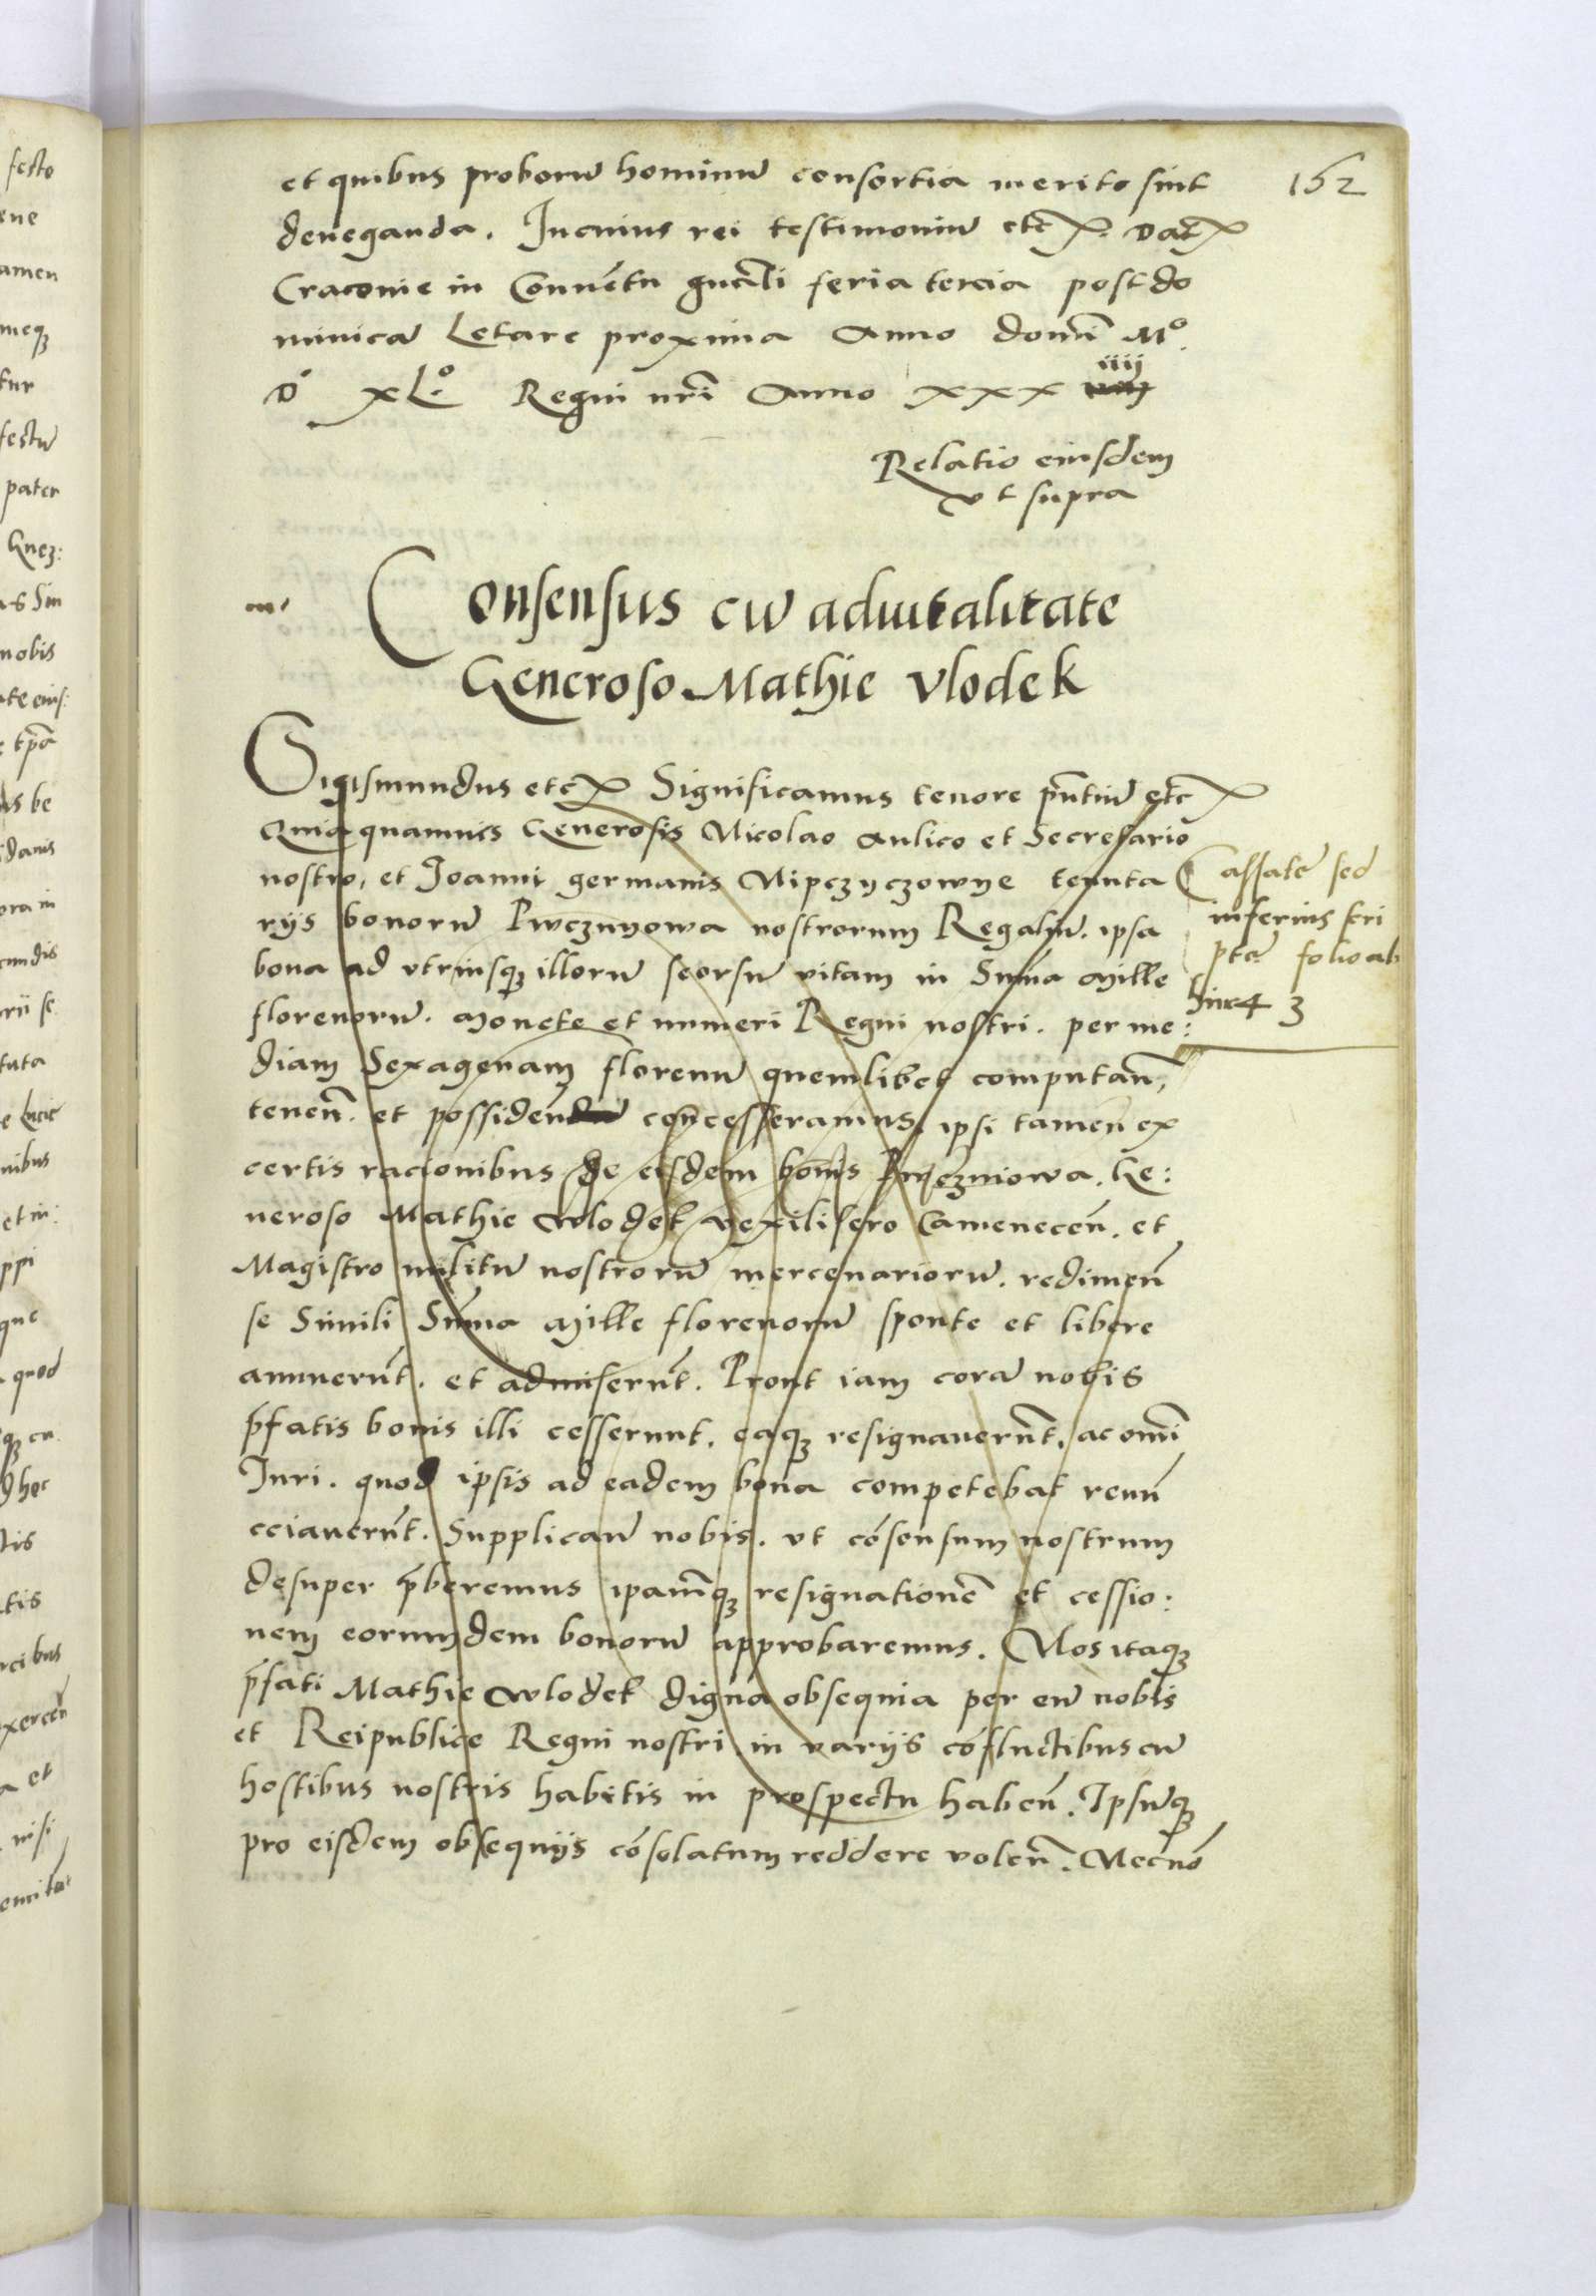 152
et quibus proborū hominū consortia merito sint
deneganda. Incuius rei testimoniū etc. Dat
Cracouie in Conuētu gnāli feria tercia post do
minicā Letare proxima Anno domī Mº
Dº XLº Regni nrī Anno XXX iiij
Relatio eiusdem
vt supra
Consensus cū aduitalitate
Generoso Mathie Vlodek
Sigismundus etc Significamus tenore pn̄tiū etc
Quia quamuis Generosis Nicolao Aulico et Secretario
nostro, et Joanni germanis Nipczyczowye tenuta
rijs bonorū Pwcznyowa nostrorum Regaliū. ipsa
bona ad vtriusq; illorū seorsū vitam in Sum̄a Mille
florenorū. Monete et numeri Regni nostri. per me:
diam Sexagenam florenū quemlibet computan̄,
tenen̄. et possiden̄ concesseramus, ipsi tamen ex
certis racionibus de eisdem bonis Pwczniowa. Ge:
neroso Mathie Wlodek vexilifero Camenecen̄. et
Magistro militū nostrorū mercenariorū. redimen̄
se Simili Sum̄a Mille florenorū sponte et libere
annuerūt. et admiserūt. Prout iam corā nobis
p̄fatis bonis illi cesserunt. eaq; resignauerūt, ac omī
Juri. quod ipsis ad eadem bona competebat renun̄
cciauerūt. Supplicarū nobis. vt cōsensum nostrum
desuper p̄beremus ipamq; resignationē et cessio:
nem eorumdem bonorū approbaremus. Nos itaq;
p̄fati Mathie Wlodek digna obsequia per eū nobis
et Reipublice Regni nostri in varijs cōfluctibus cū
hostibus nostris habitis in prospectu haben̄. Ipsūq;
pro eisdem obsequijs cōsolatum reddere volen̄. Necnō
Cassatē sed
inferius scri
ptē folio ab
hinc 4 3